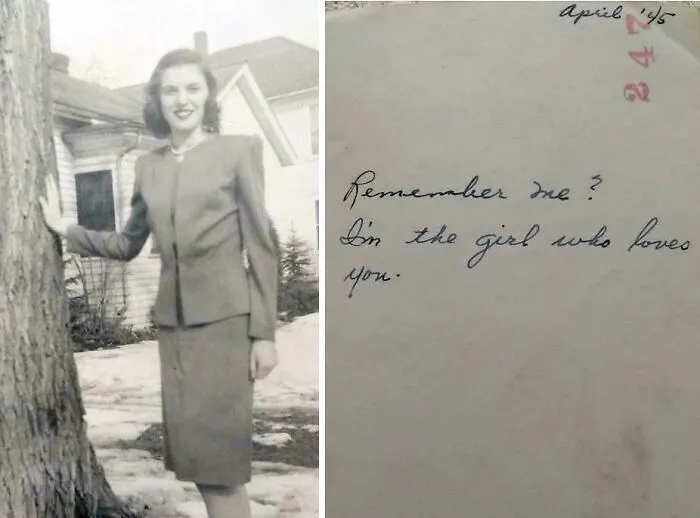 April '45
247
Remember me?
I'm the girl who loves
you.